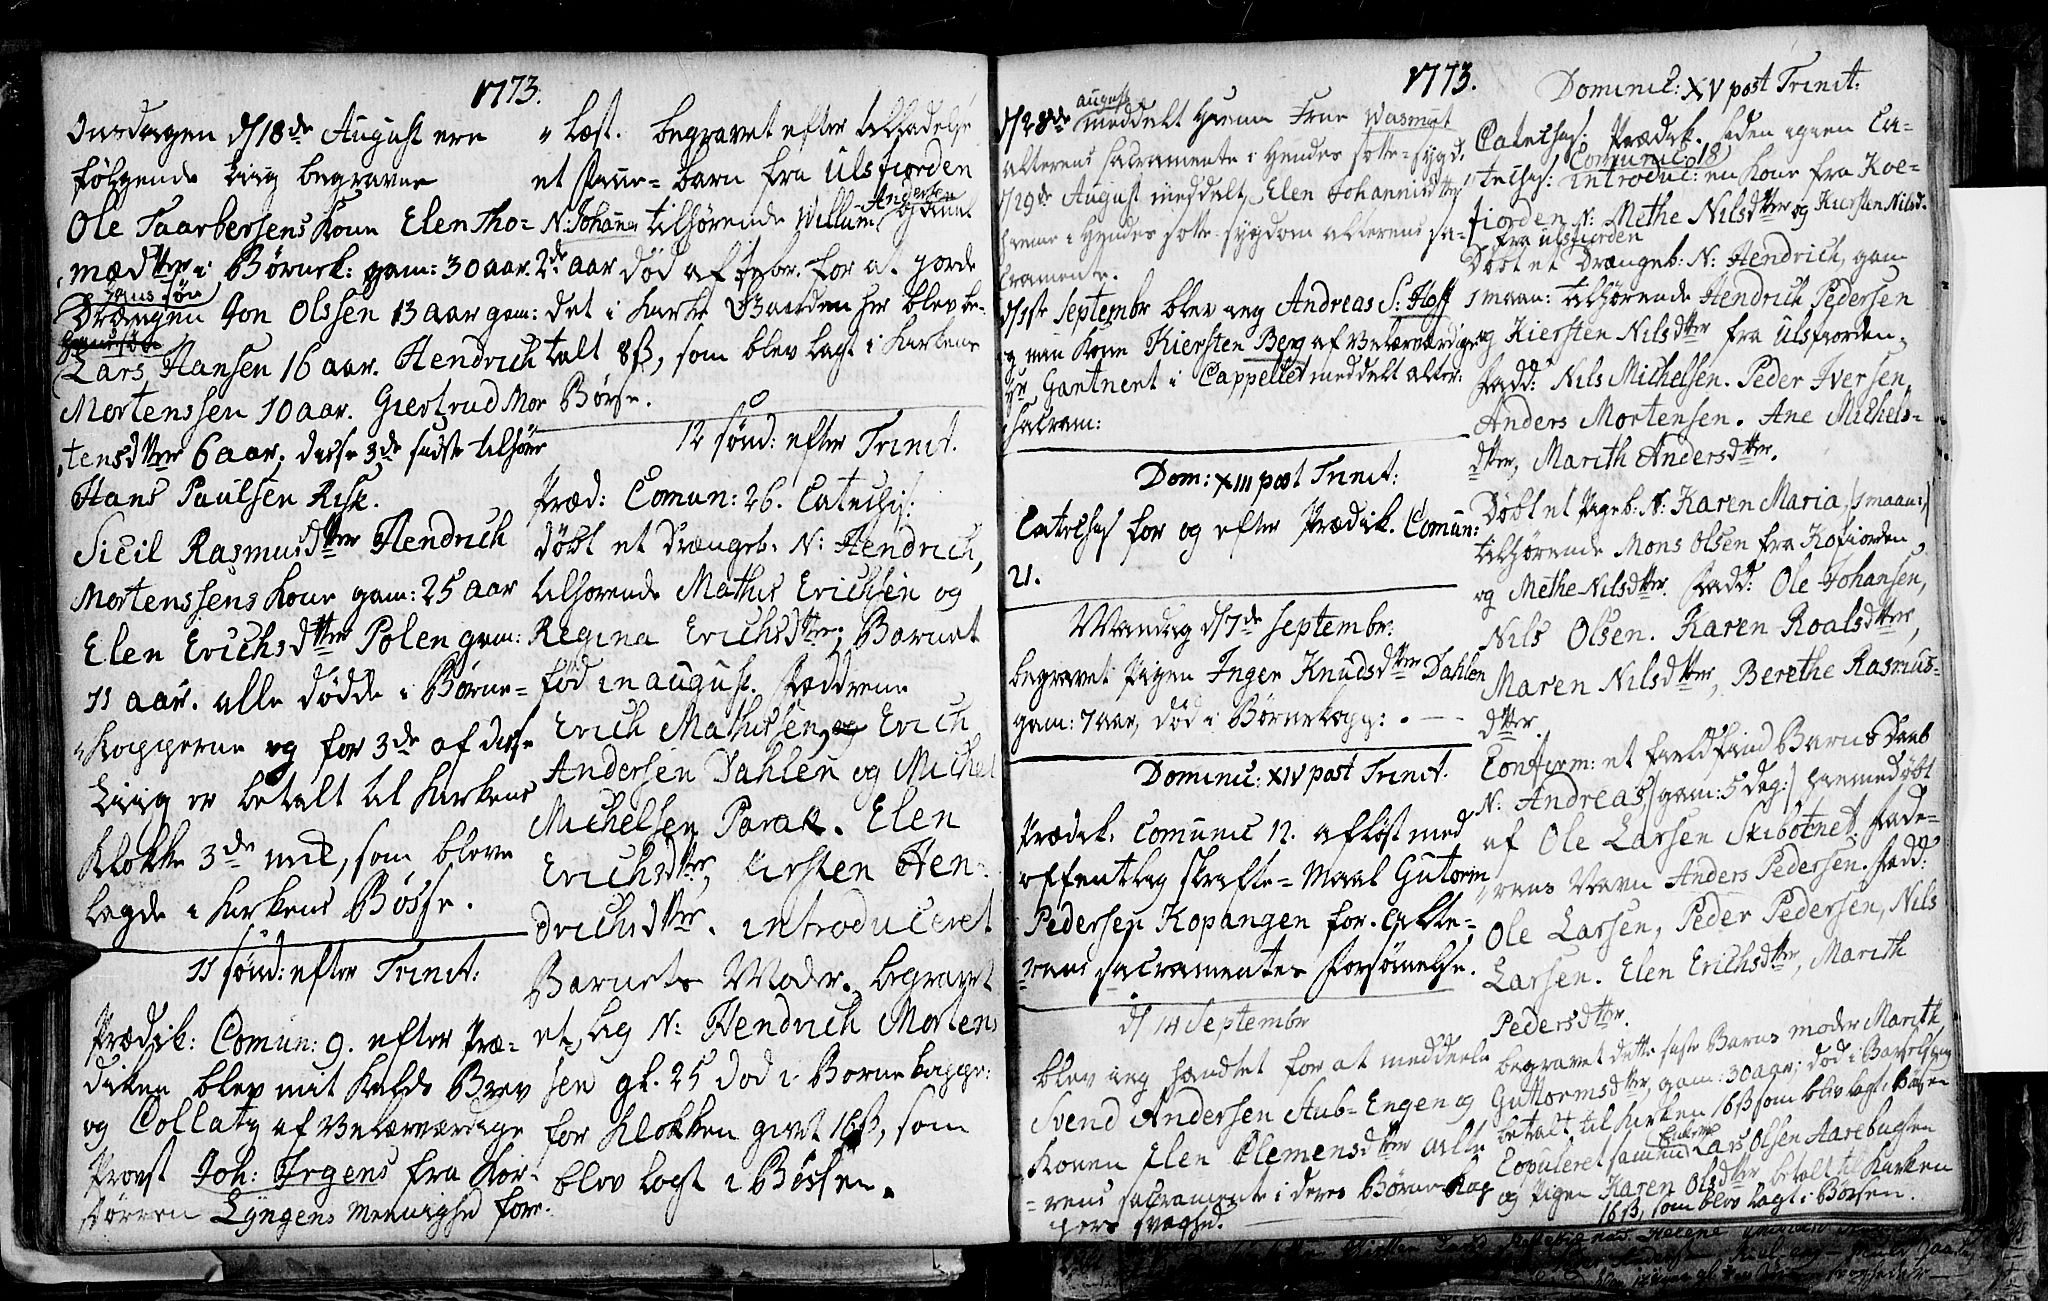 1773.
Onsdagen d/18de August ere
følgende Liig begravne
Ole Taarbersens Kone Elen Tho=
mædtter i Børnek: gam: 30 aar.
Hans søn
Drængen Jon Olssen 13 aar gam:
Lars Hansen 16 aar. Hendrich
Mortenssen 10 aar. Giertrud Mor
tensdtter 6 aar, disse 3de sidste tilhører
Hans Paulsen Risk.
Sicil Rasmusdtter Hendrich
Mortenssens Kone gam: 25 aar
Elen Erichsdtter Polen gam:
11 aar. alle dødde i Børne=
Kopperne og for 3de af disse
Liig er betalt til Kirkens
Klokke 3de , som bleve
lagde i Kirkens Bøsse.
11 sønd: efter Trinit:
Prædik: Comun: 9. efter Præ=
diken blev mit Kalds Brev
og Collatz af Velærværdige
Provst Joh: Irgens fra Kor=
Lyngens Meenighed fore=
læst. begravet efter tilladelse
et Pige=barn fra Ulsfiorden
Andersen
N: Johanna tilhørende Willum
2de aar død af for at jorde
det i Kirke Gaarden her blev be=
talt 8ß, som blev lagt i Kirkens
Børse.
12 sønd: efter Trinit.
Præd: Comun: 26. Catechis:
døbt et Drængeb. N: Hendrich,
tilhørende Mathis Erichsen og
Regina Erichsdtter, Barnet
fød in august. Faddrene
Erich Mathissen, Erich
Andersen Dahlen og Michel
Michelsen Parak. Elen
Erichsdtter, Kirsten Hen=
drichsdtter. introduceret
Barnets Moder. begravet
et Lig N: Hendrich Mortens
sen gl. 25 død i Børnekopper:
for Klokken givet 16ß, som
blev lagt i Bøssen.
1773.
august
d/28de meddelt Hiemme Frue Wasmut
alterens sacramente i Hendes sotte=sygd:
d/29de August meddelt Elen Johannisdtter
hiemme i Hendes sotte-sygdom alterens sa=
cramente.
d/1ste Septembr blev ieg Andreas S: Hoff
og min Kone Kiersten Berg af Velærværdige
Hr Gantnert i Cappellet meddelt alter:
sacram:
Dom: XIII post Trinit:
Catechis for og efter Prædik. Comun:
21.
Mandag d/7de Septembr:
begravet Pigen Inger Knudsdtter Dahlen
gam: 7 aar, død i Børnekopp:.
Dominic: XIV post Trinit.
Prædik. Comunic 12. afløst med
offentlig skrifte=Maal Guttorm
Pedersen Kopangen for alte=
rens sacramentes forsømelse.
d/14 Septembr
blev ieg hændtet for at meddeele
Svend Andersen Stub-Engen og
Konen Elen Clemensdtter alte=
rens sacramente i deres Børne-Kop
pers svaghed.
Dominic: XV post Trinit:
Catechis: Prædik. siden igien Ca=
Comunic 18
techis: introduc: en Kone fra Koe=
fiorden N: Methe Nilsdtter og Kiersten Nilsd.
fra Ulsfiorden
Døbt et Drængeb: N: Hendrich, gam
1 maan: tilhørende Hendrich Pedersen
og Kiersten Nilsdtter fra Ulsfiorden,
Fadd: Nils Michelsen. Peder Iversen,
Anders Mortensen. Ane Michels=
dtter, Marith Andersdtter.
Døbt et Pigeb: N: Karen Maria, (1 maan:)
tilhørende Mons Olsen fra Kofiorden
og Methe Nilsdtter. Fadd: Ole Johansen,
Nils Olsen. Karen Roalsdtter,
Maren Nilsdtter, Berethe Rasmus=
dtter.
Confirm: et Fieldfind Barns Daab
N: Andreas (gam: 5 dag:) hiemedøbt
af Ole Larsen Skibotnet. Fade=
rens Navn Anders Pedersen. Fadd:
Ole Larsen, Peder Pedersen, Nils
Larsen. Elen Erichsdtter, Marith
Pedersdtter.
begravet dette sidste Barns moder Marith
Guttormsdtter, gam: 30 aar, død i Barselseng
betalt til Kirken 16ß som blev lagt i Bøsen
Enkem
Copuleret samme Lars Olsen Aarebugten
og Pigen Karen Olsdtter betalt til Kirken
16ß, som blev lagt i Børsen.